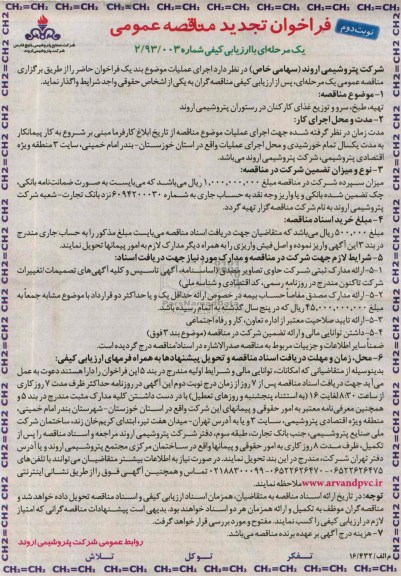 نوبت دوم
فراخوان تجدید مناقصه عمومی
یک مرحله‌ای با ارزیابی کیفی شماره ۲/۹۳/۰۰۳
شرکت صنایع پتروشیمی خلیج فارس
شرکت پتروشیمی اروند
شرکت پتروشیمی اروند (سهامی خاص) در نظر دارد اجرای عملیات موضوع بند یک فراخوان حاضر را از طریق برگزاری
مناقصه عمومی یک مرحله‌ای، پس از ارزیابی کیفی مناقصه گران به یکی از اشخاص حقوقی واجد شرایط واگذار نماید.
۱- موضوع مناقصه:
تهیه، طبخ، سرو و توزیع غذای کارکنان در رستوران پتروشیمی اروند
۲- مدت و محل اجرای کار:
مدت زمان در نظر گرفته شده جهت اجرای عملیات موضوع مناقصه از تاریخ ابلاغ کارفرما مبنی بر شروع به کار پیمانکار
به مدت یکسال تمام خورشیدی و محل اجرای عملیات واقع در استان خوزستان-بندر امام خمینی، سایت ۳ منطقه ویژه
اقتصادی پتروشیمی، شرکت پتروشیمی اروند می‌باشد.
۳- نوع و میزان تضمین شرکت در مناقصه:
میزان سپرده شرکت در مناقصه مبلغ ۱,۰۰۰,۰۰۰,۰۰۰ ریال می‌باشد که می‌بایست به صورت ضمانت‌نامه بانکی،
چک تضمین شده بانکی و یا واریز وجه نقد به حساب جاری به شماره ۶۰۹۴۲۰۰۰۳۰ نزد بانک تجارت-شعبه شرکت
پتروشیمی اروند به نام شرکت مناقصه‌گزار تهیه گردد.
۴- مبلغ خرید اسناد مناقصه:
مبلغ ۵۰۰,۰۰۰ ریال می‌باشد که متقاضیان جهت دریافت اسناد مناقصه می‌بایست مبلغ مذکور را به حساب جاری مندرج
در بند ۳ این آگهی واریز نموده و اصل فیش واریزی را به همراه دیگر مدارک لازم به امور پیمانها تحویل نمایند.
۵- شرایط لازم جهت شرکت در مناقصه و مدارک مورد نیاز جهت دریافت اسناد:
۵-۱- ارائه مدارک ثبتی شرکت حاوی تصاویر مصدق (اساسنامه، آگهی تاسیس و کلیه آگهی‌های تصمیمات/تغییرات
شرکت تاکنون مندرج در روزنامه رسمی، کد اقتصادی و شناسه ملی)
۵-۲- ارائه مدارک مصدق مفاصاً حساب بیمه در خصوص ارائه حداقل یک و یا حداکثر دو قرارداد با موضوع مشابه جمعاً به
مبلغ ۴۵,۰۰۰,۰۰۰,۰۰۰ ریال که در پنج سال گذشته به اتمام رسیده باشد.
۵-۳- ارائه تایید صلاحیت معتبر از اداره تعاون، کار و رفاه اجتماعی
۵-۴- داشتن توانایی مالی و ارائه تضمین شرکت در مناقصه (موضوع بند ۳ فوق)
ضمناً سایر اطلاعات و جزییات مربوط به مناقصه صدرالاشاره در اسناد مناقصه درج گردیده است.
۶- محل، زمان و مهلت دریافت اسناد مناقصه و تحویل پیشنهادها به همراه فرمهای ارزیابی کیفی:
بدینوسیله از متقاضیانی که امکانات، توانایی مالی و شرایط اولیه مندرج در بند ۵ این فراخوان را دارا هستند دعوت به عمل
می‌آید جهت دریافت اسناد مناقصه پس از ۷ روز از زمان درج نوبت دوم این آگهی در روزنامه حداکثر ظرف مدت ۷ روز کاری
از ساعت ۸:۳۰ لغایت ۱۶ (به استثناء پنجشنبه و روزهای تعطیل) با در دست داشتن کلیه مدارک مثبت مندرج در بند ۵ و
همچنین معرفی‌نامه معتبر به امور حقوقی و پیمانهای این شرکت واقع در استان خوزستان-شهرستان بندر امام خمینی،
منطقه ویژه اقتصادی پتروشیمی، سایت ۳ و یا به آدرس تهران-میدان هفت تیر، ابتدای کریم‌خان زند، ساختمان شرکت
ملی صنایع پتروشیمی، جنب بانک تجارت، طبقه سوم، دفتر شرکت پتروشیمی اروند مراجعه و اسناد مناقصه را پس از
تکمیل، ظرف مدت ۸ روز کاری به امور حقوقی و پیمانها واقع در ساختمان مرکزی مجتمع پتروشیمی اروند و یا آدرس
دفتر تهران شرکت، مندرج در این بند تحویل نمایند. در صورت نیاز به اطلاعات بیشتر متقاضیان می‌توانند با تلفن‌های
۰۶۵۲۲۶۲۶۴۷۵-۰۶۵۲۲۶۲۶۴۷۰-۰۲۱۸۸۳۰۰۰۹۹ تماس و همچنین آگهی فوق را از طریق نشانی اینترنتی
www.arvandpvc.ir ملاحظه نمایند.
توجه: در تاریخ ارائه اسناد مناقصه به متقاضیان، همزمان اسناد ارزیابی کیفی و اسناد مناقصه تحویل داده خواهد شد و
مناقصه گران موظف به تکمیل و ارائه همزمان هر دو اسناد خواهند بود. بدیهی است پیشنهادات مناقصه‌گرانی که امتیاز
لازم در ارزیابی کیفی را کسب نمایند، مفتوح و مورد بررسی قرار خواهد گرفت.
۷- هزینه درج آگهی بر عهده برنده مناقصه می‌باشد.
روابط عمومی شرکت پتروشیمی اروند
م الف/۱۶/۴۳۲
تفکر توکل تلاش
CH2=CH2 CH2=CH2 CH2=CH2 CH2=CH2 CH2=CH2 CH2=CH2